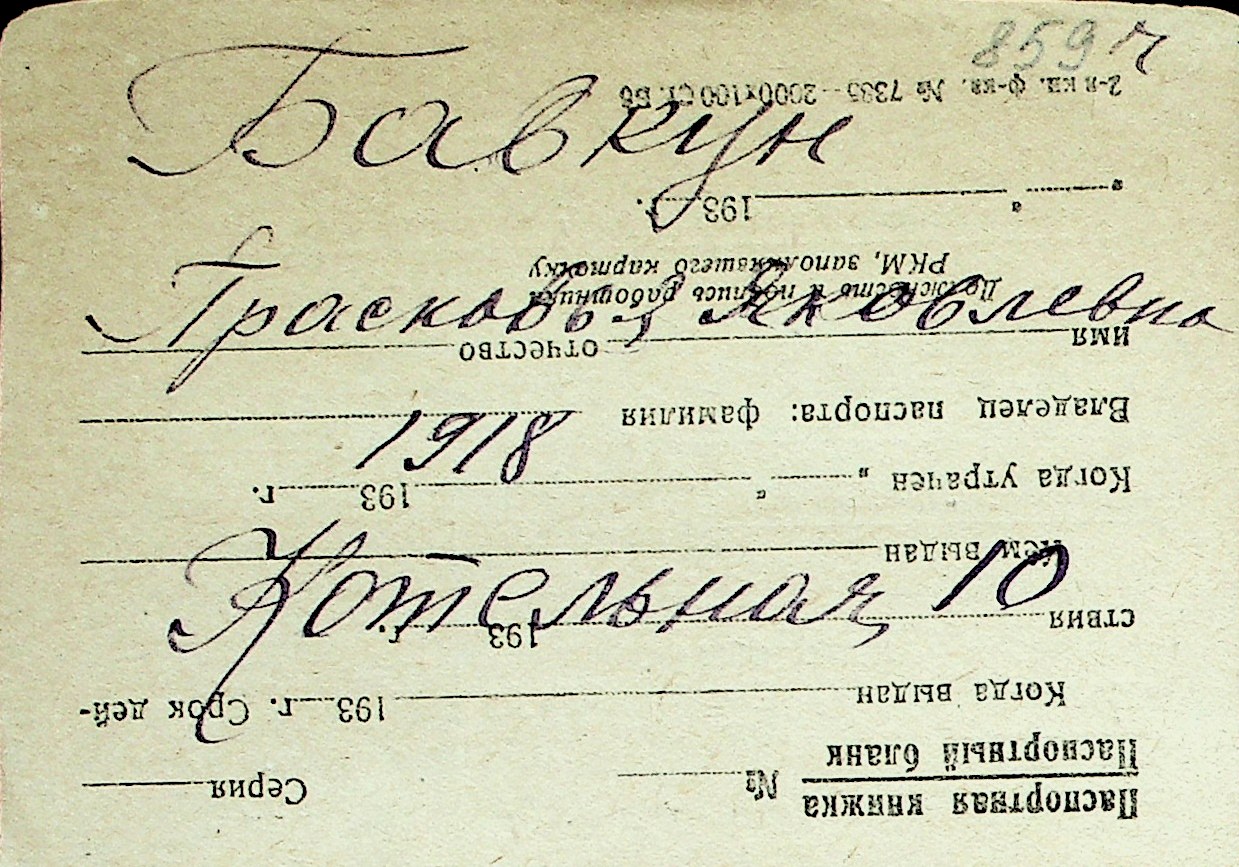 859 ч
Бавкун
Прасковья Яковлевна
1918
Котельная, 10
Паспортная книжка
Паспортный бланк
№ Серия
Когда выдан 193 г. Срок дей-
ствия 193
Кем выдан
Когда утрачен „ “ 193 г.
Владелец паспорта: фамилия
имя отчество
Должность и подпись работника
РКМ, заполнявшего карточку
„ “ 193 г.
2-я кн. ф-ка. № 7385—2000х100 ст. Бб